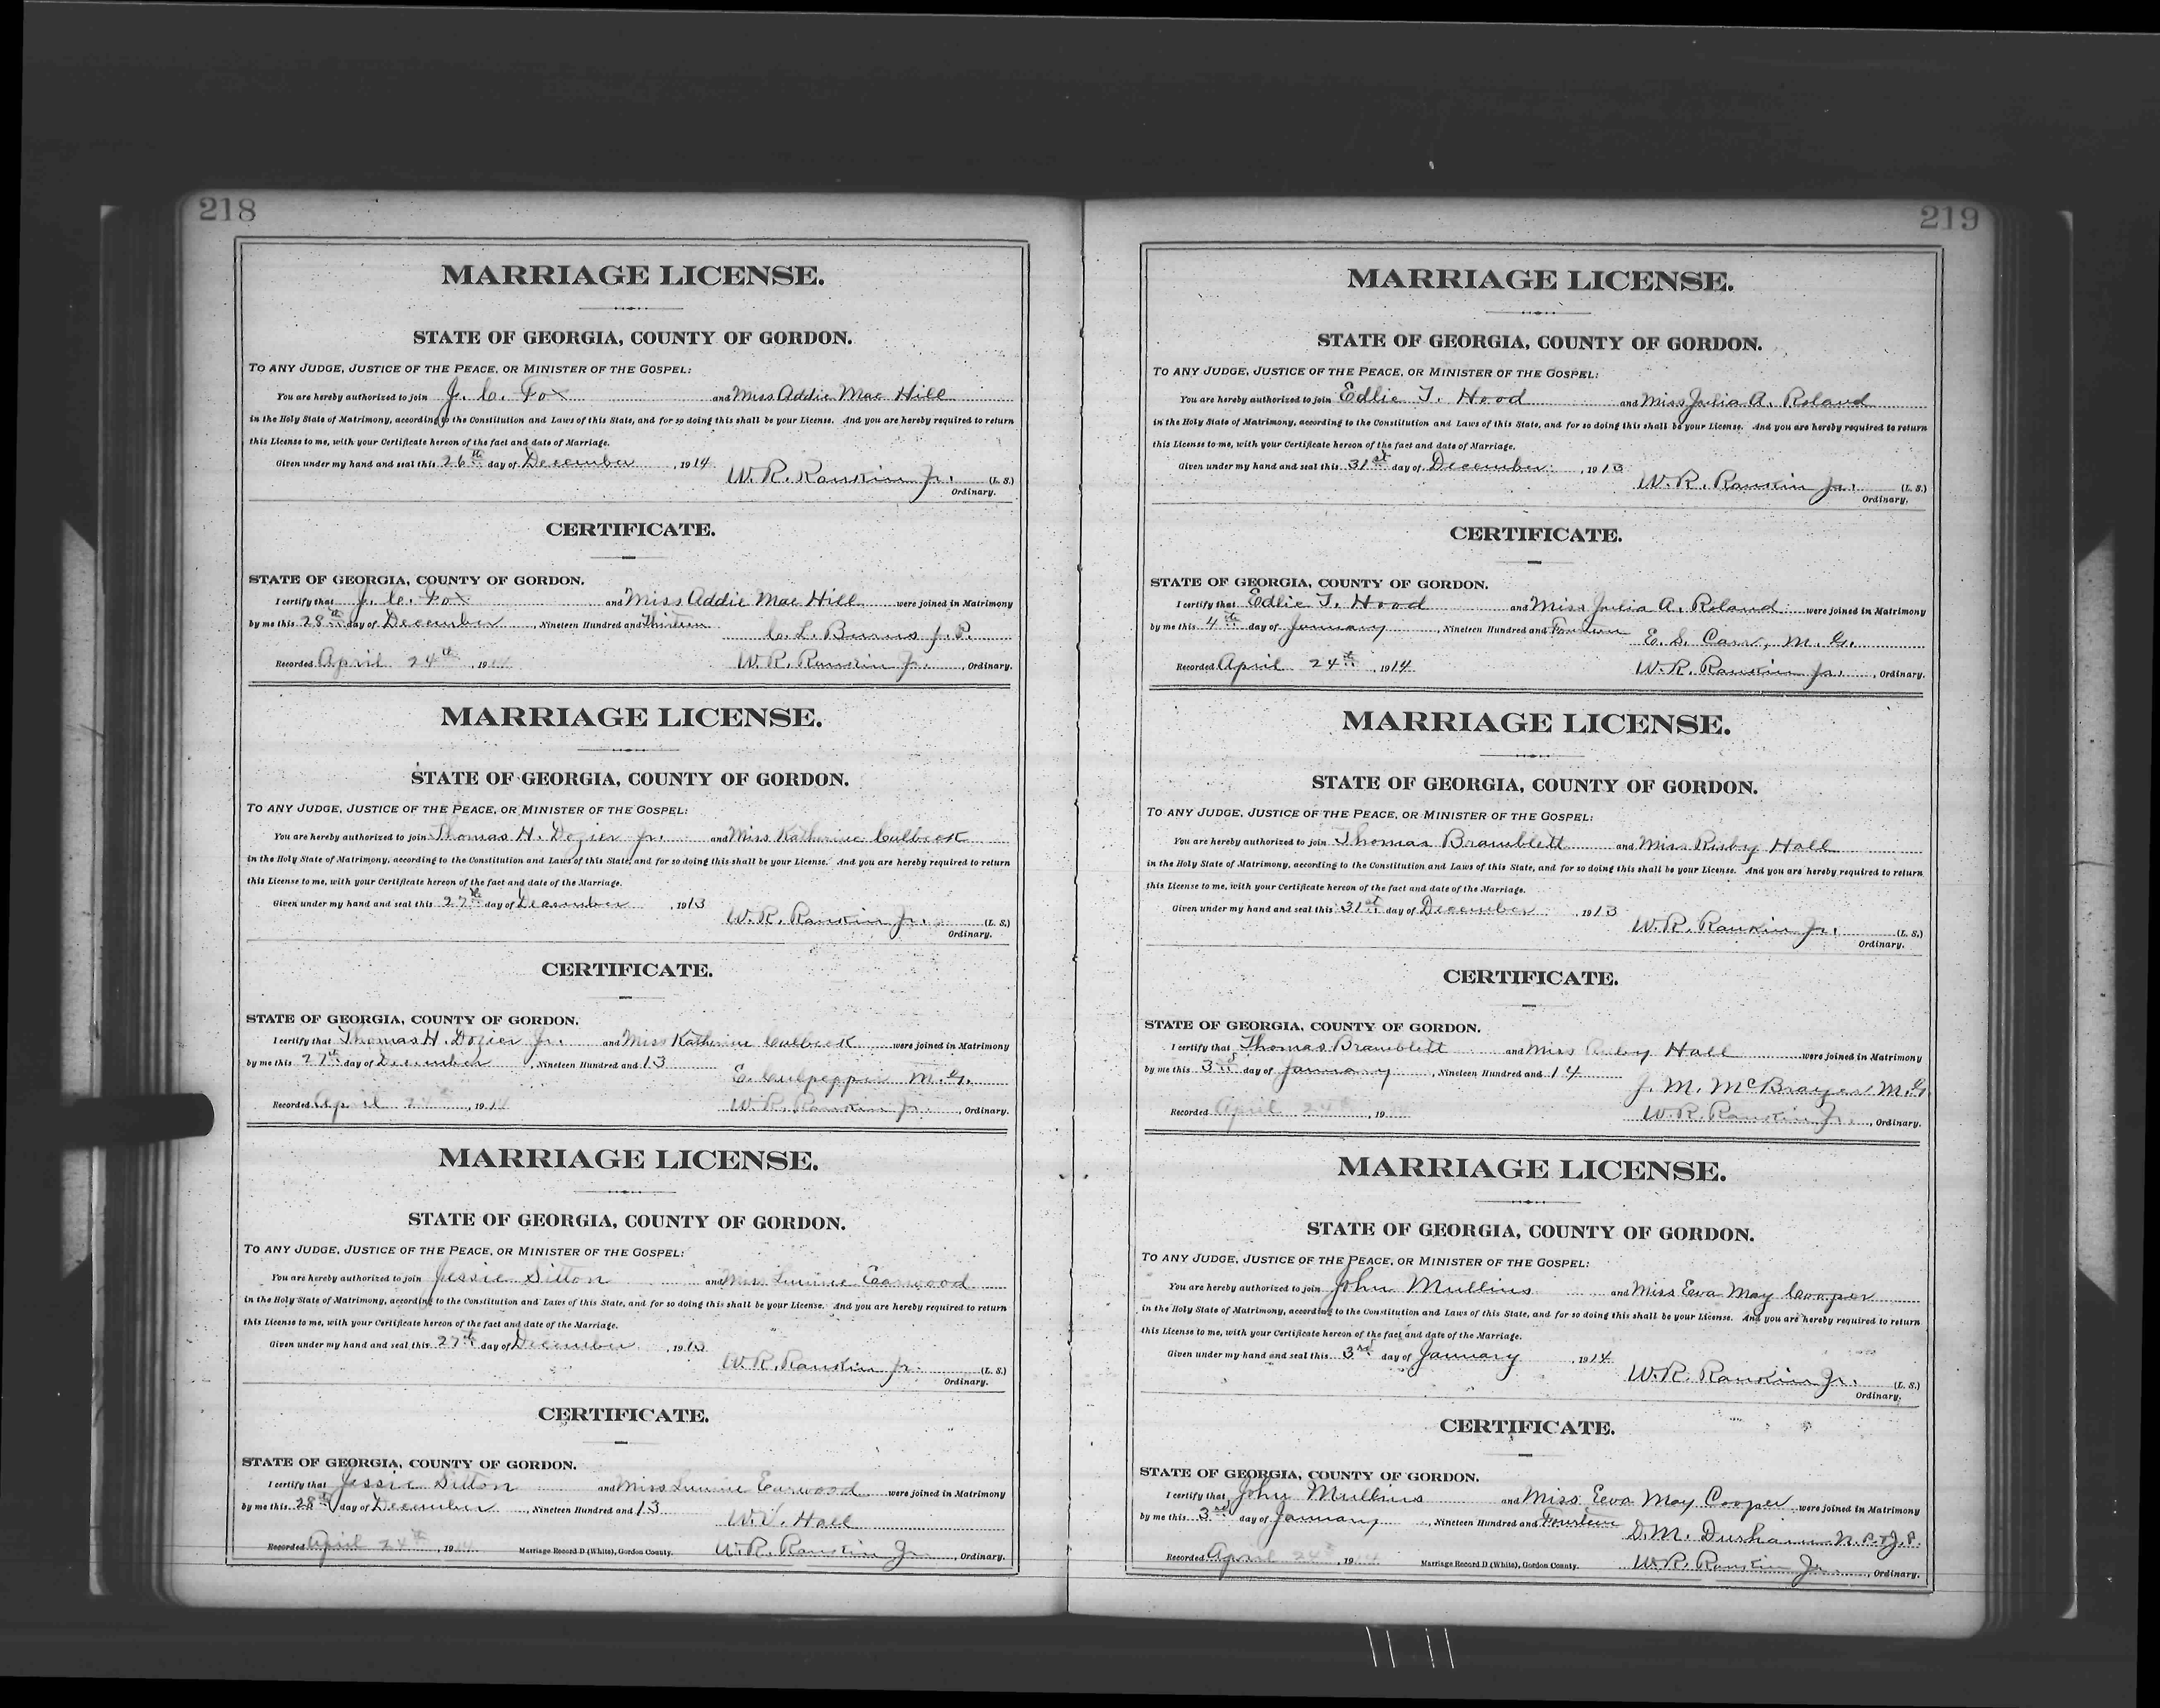 218
MARRIAGE LICENSE.
STATE OF GEORGIA, COUNTY OF GORDON.
TO ANY JUDGE, JUSTICE OF THE PEACE, OR MINISTER OF THE GOSPEL:
You are hereby authorized to join J. C. Fox and Miss Addie Mae Hill
in the Holy State of Matrimony, according to the Constitution and Laws of this State, and for so doing this shall be your License. And you are hereby required to return
this License to me, with your Certificate hereon of the fact and date of Marriage.
Given under my hand and seal this 26th day of December, 1914
W. R. Rankin Jr. (L. S.)
Ordinary.
CERTIFICATE.
STATE OF GEORGIA, COUNTY OF GORDON.
I certify that J. C. Fox and Miss Addie Mae Hill were joined in Matrimony
by me this 28th day of December, Nineteen Hundred and Thirteen
C. L. Burns J. P.
Recorded April 24th, 1914 W. R. Rankin Jr., Ordinary.
MARRIAGE LICENSE.
STATE OF GEORGIA, COUNTY OF GORDON.
TO ANY JUDGE, JUSTICE OF THE PEACE, OR MINISTER OF THE GOSPEL:
You are hereby authorized to join Thomas H. Dozier Jr. and Miss Katherine
in the Holy State of Matrimony, according to the Constitution and Laws of this State, and for so doing this shall be your License. And you are hereby required to return
this License to me, with your Certificate hereon of the fact and date of the Marriage.
Given under my hand and seal this 27th day of December, 1913
W. R. Rankin Jr. (L. S.)
Ordinary.
CERTIFICATE.
STATE OF GEORGIA, COUNTY OF GORDON.
I certify that Thomas H. Dozier Jr. and Miss Katherine were joined in Matrimony
by me this 27th day of December, Nineteen Hundred and 13
E. Culpepper M. G.
Recorded April 24th, 1914 W. R. Rankin Jr., Ordinary.
MARRIAGE LICENSE.
STATE OF GEORGIA, COUNTY OF GORDON.
TO ANY JUDGE, JUSTICE OF THE PEACE, OR MINISTER OF THE GOSPEL:
You are hereby authorized to join Jessie Sitton and Miss Earwood
in the Holy State of Matrimony, according to the Constitution and Laws of this State, and for so doing this shall be your License. And you are hereby required to return
this License to me, with your Certificate hereon of the fact and date of the Marriage.
Given under my hand and seal this 27th day of December, 1913
W. R. Rankin Jr. (L. S.)
Ordinary.
CERTIFICATE.
STATE OF GEORGIA, COUNTY OF GORDON.
I certify that Jessie Sitton and Miss Earwood were joined in Matrimony
by me this 28th day of December, Nineteen Hundred and 13
W. V. Hall
Recorded April 24th, 19 Marriage Record D (White), Gordon County. W. R. Rankin Jr., Ordinary.
219
MARRIAGE LICENSE.
STATE OF GEORGIA, COUNTY OF GORDON.
TO ANY JUDGE, JUSTICE OF THE PEACE, OR MINISTER OF THE GOSPEL:
You are hereby authorized to join Edlie T. Hood and Miss Julia A. Roland
in the Holy State of Matrimony, according to the Constitution and Laws of this State, and for so doing this shall be your License. And you are hereby required to return
this License to me, with your Certificate hereon of the fact and date of Marriage.
Given under my hand and seal this 31st day of December, 1913
W. R. Rankin Jr. (L. S.)
Ordinary.
CERTIFICATE.
STATE OF GEORGIA, COUNTY OF GORDON.
I certify that Edlie T. Hood and Miss Julia A. Roland were joined in Matrimony
by me this 4th day of January, Nineteen Hundred and Fourteen
E. S. Carr, M. G.
Recorded April 24th, 1914 W. R. Rankin Jr., Ordinary.
MARRIAGE LICENSE.
STATE OF GEORGIA, COUNTY OF GORDON.
TO ANY JUDGE, JUSTICE OF THE PEACE, OR MINISTER OF THE GOSPEL:
You are hereby authorized to join Thomas Bramblett and Miss Hall
in the Holy State of Matrimony, according to the Constitution and Laws of this State, and for so doing this shall be your License. And you are hereby required to return
this License to me, with your Certificate hereon of the fact and date of the Marriage.
Given under my hand and seal this 31st day of December, 1913
W. R. Rankin Jr. (L. S.)
Ordinary.
CERTIFICATE.
STATE OF GEORGIA, COUNTY OF GORDON.
I certify that Thomas Bramblett and Miss Hall were joined in Matrimony
by me this 3rd day of January, Nineteen Hundred and 14
J. M. McBrayer M. G.
Recorded April 24th, 19 W. R. Rankin Jr., Ordinary.
MARRIAGE LICENSE.
STATE OF GEORGIA, COUNTY OF GORDON.
TO ANY JUDGE, JUSTICE OF THE PEACE, OR MINISTER OF THE GOSPEL:
You are hereby authorized to join John Mullins and Miss Eva May Cooper
in the Holy State of Matrimony, according to the Constitution and Laws of this State, and for so doing this shall be your License. And you are hereby required to return
this License to me, with your Certificate hereon of the fact and date of the Marriage.
Given under my hand and seal this 3rd day of January, 1914
W. R. Rankin Jr. (L. S.)
Ordinary.
CERTIFICATE.
STATE OF GEORGIA, COUNTY OF GORDON.
I certify that John Mullins and Miss Eva May Cooper were joined in Matrimony
by me this 3rd day of January, Nineteen Hundred and Fourteen
D. M. Durham N. P. & J. P.
Recorded April 24th, 1914 Marriage Record D (White), Gordon County. W. R. Rankin Jr., Ordinary.